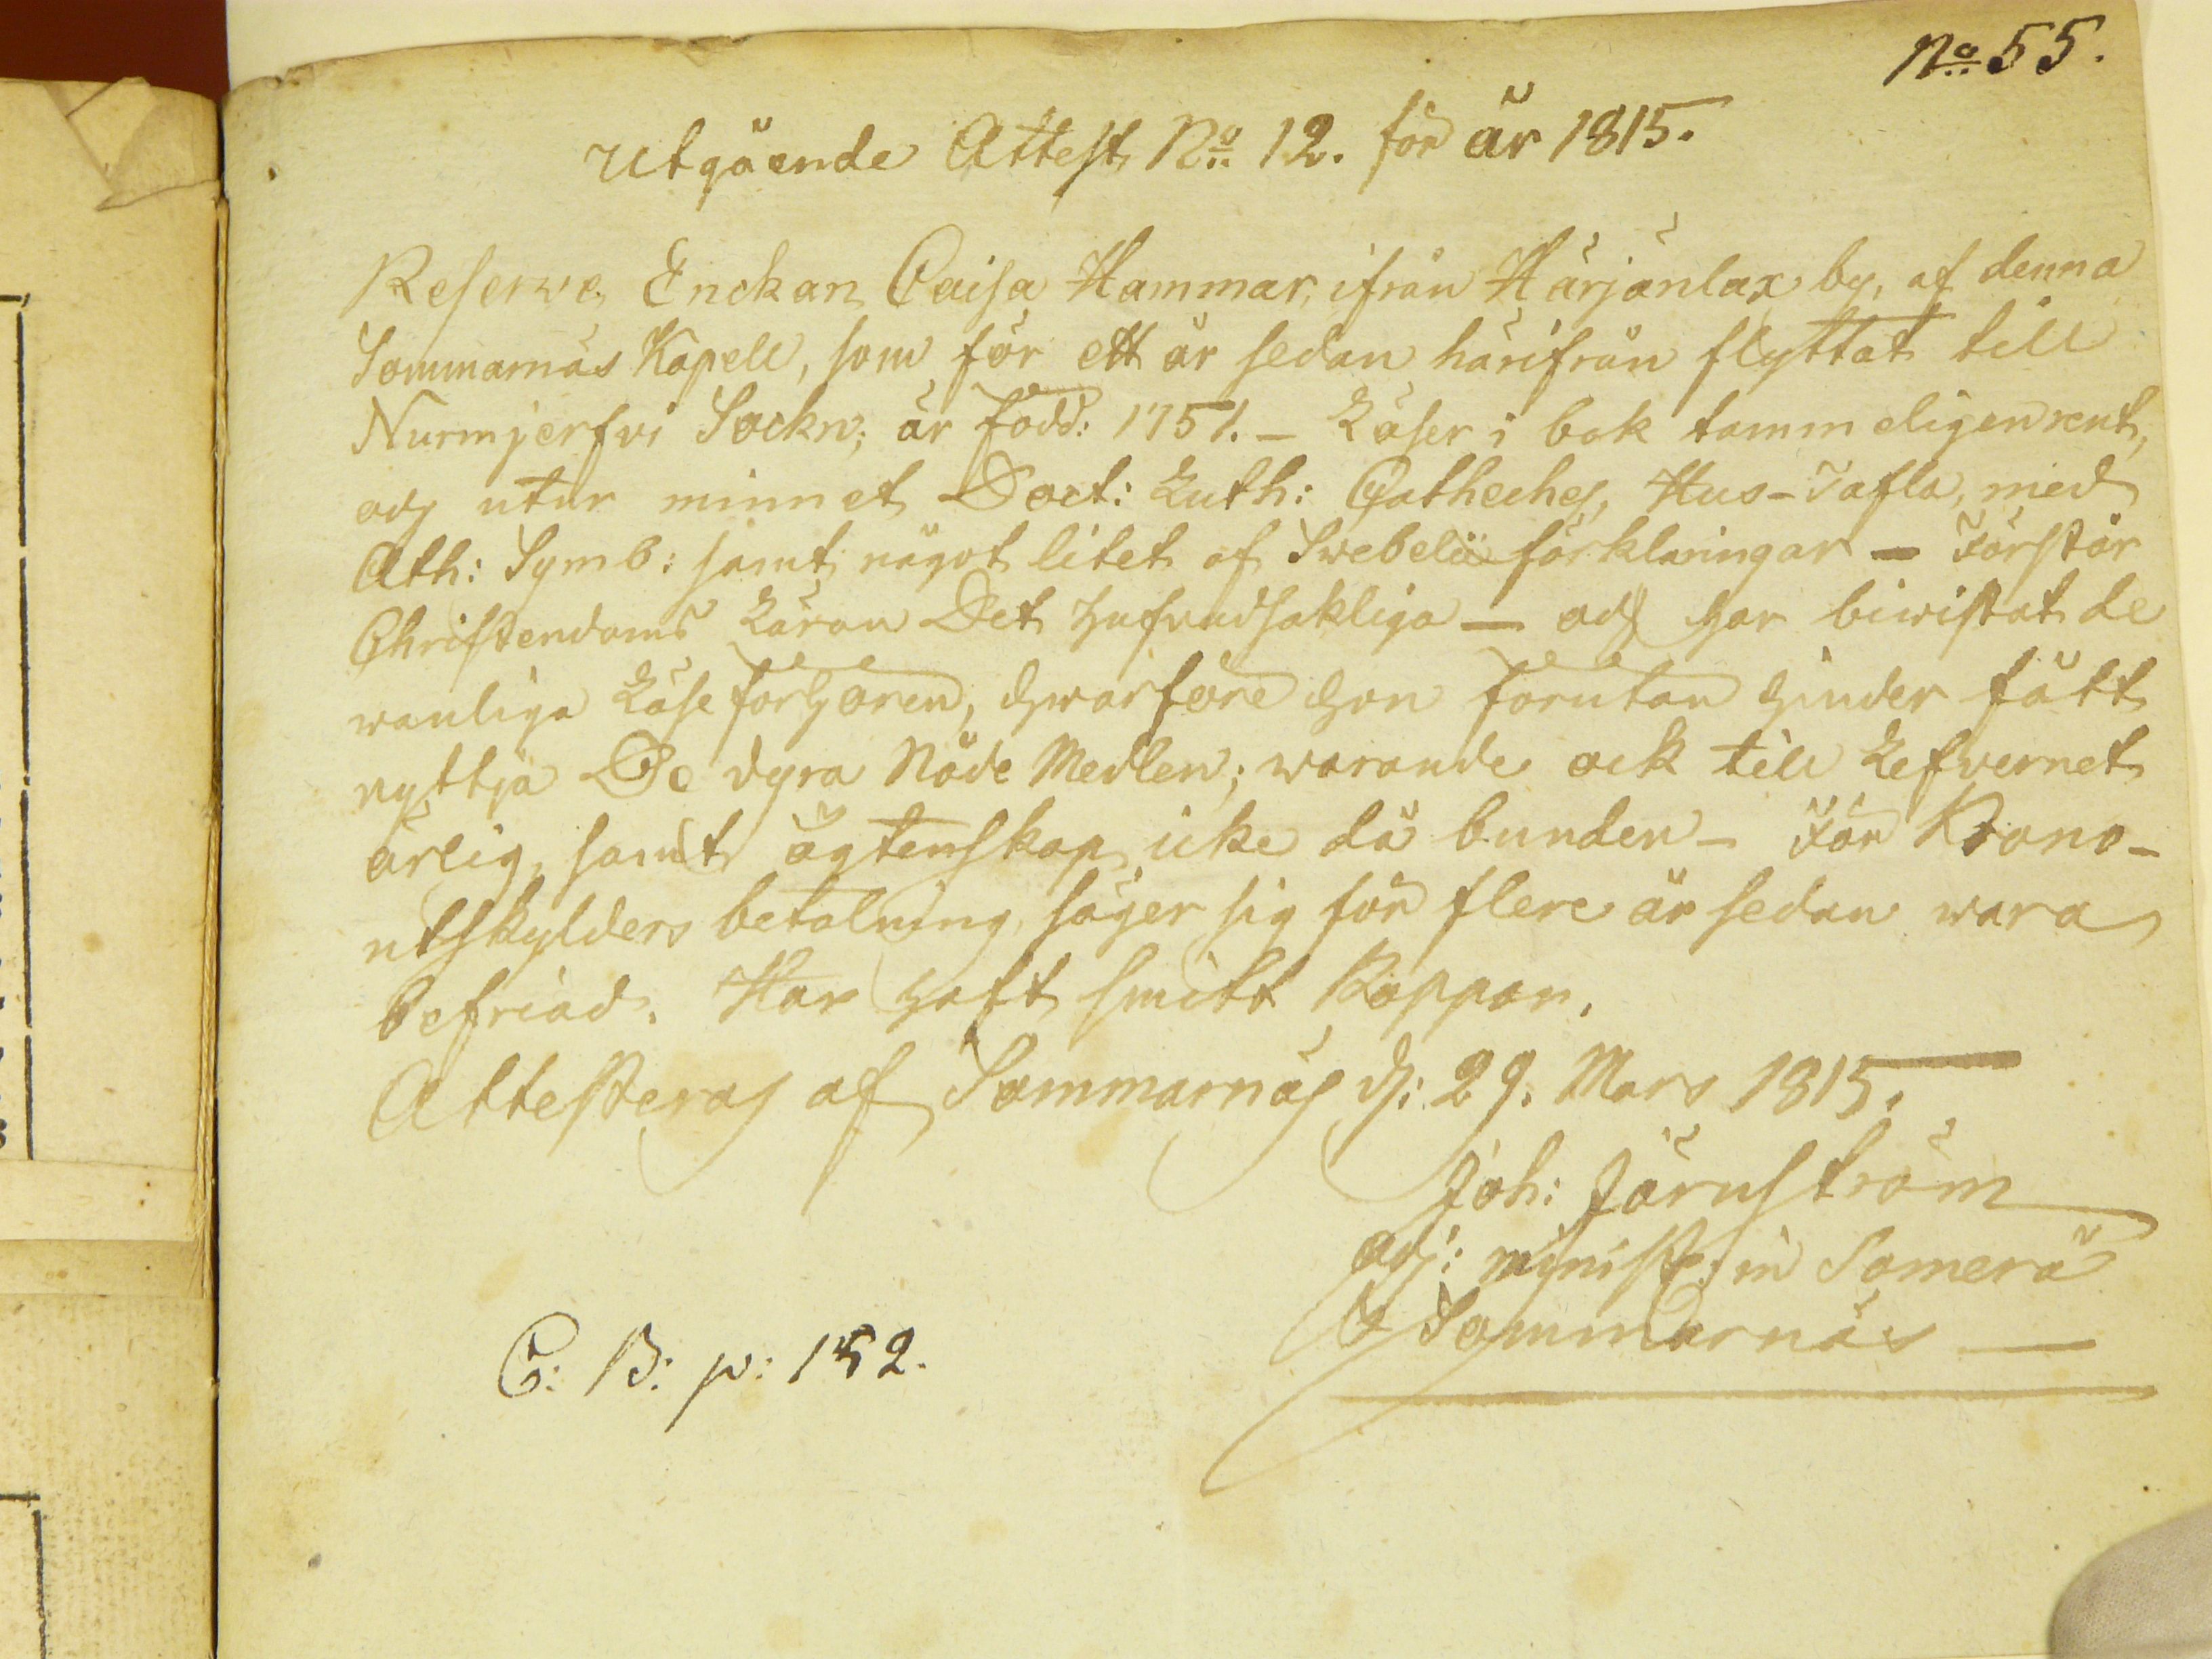 No 55.
Utgående Attest No 12. för år 1815.
Reserwe Enckan Caisa Hammar, ifrån Härjänlax by, af denna
Sommarnäs Kapell, som för ett år sedan härifrån flyttat till
Nurmjerfvi Sockn; är född: 1751. – Läser i bok tammeligen rent,
och utur minnet Doct: Luth: Catheches, Hus-Tafla, med
Ath: Symb: samt något litet af Swebelii förklaringar – Förstår
Christendoms Läran Det hufvudsakliga – och har biwistat de
wanliga Läseförhören, hwarföre hon förutan hinder fått
nyttja De dyra Nåde Medlen; warande ock till Lefvernet
ärlig, samt ägtenskap icke då bunden – För Krono-
utskylders betalning, säger sig för flere år sedan wara
befriad. Har haft smitt Koppor.
Attesteras af Sommarnäs d: 29. Mars 1815.
Joh: Järnström
adj: minist: in Somero
& Sommarnäs
C: B: p: 152.